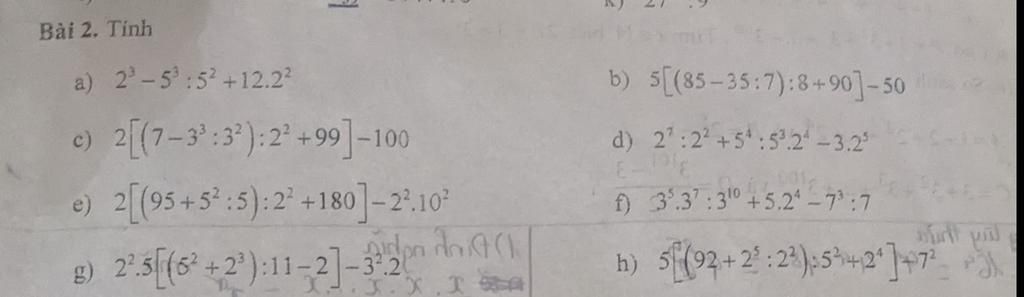 Bài 2. Tính
a) 2³ − 5³ : 5² + 12.2²
b) 5[(85 − 35 : 7) : 8 + 90] − 50
c) 2[(7 − 3³ : 3²) : 2² + 99] − 100
d) 2⁷ : 2² + 5⁴ : 5³.2⁴ − 3.2⁵
e) 2[(95 + 5² : 5) : 2² + 180] − 2².10²
f) 3⁵.3⁷ : 3¹⁰ + 5.2⁴ − 7³ : 7
g) 2².5[(5² + 2³) : 11 − 2] − 3².2
h) 5[(92 + 2⁵ : 2²) : 5² + 2⁴] − 7²